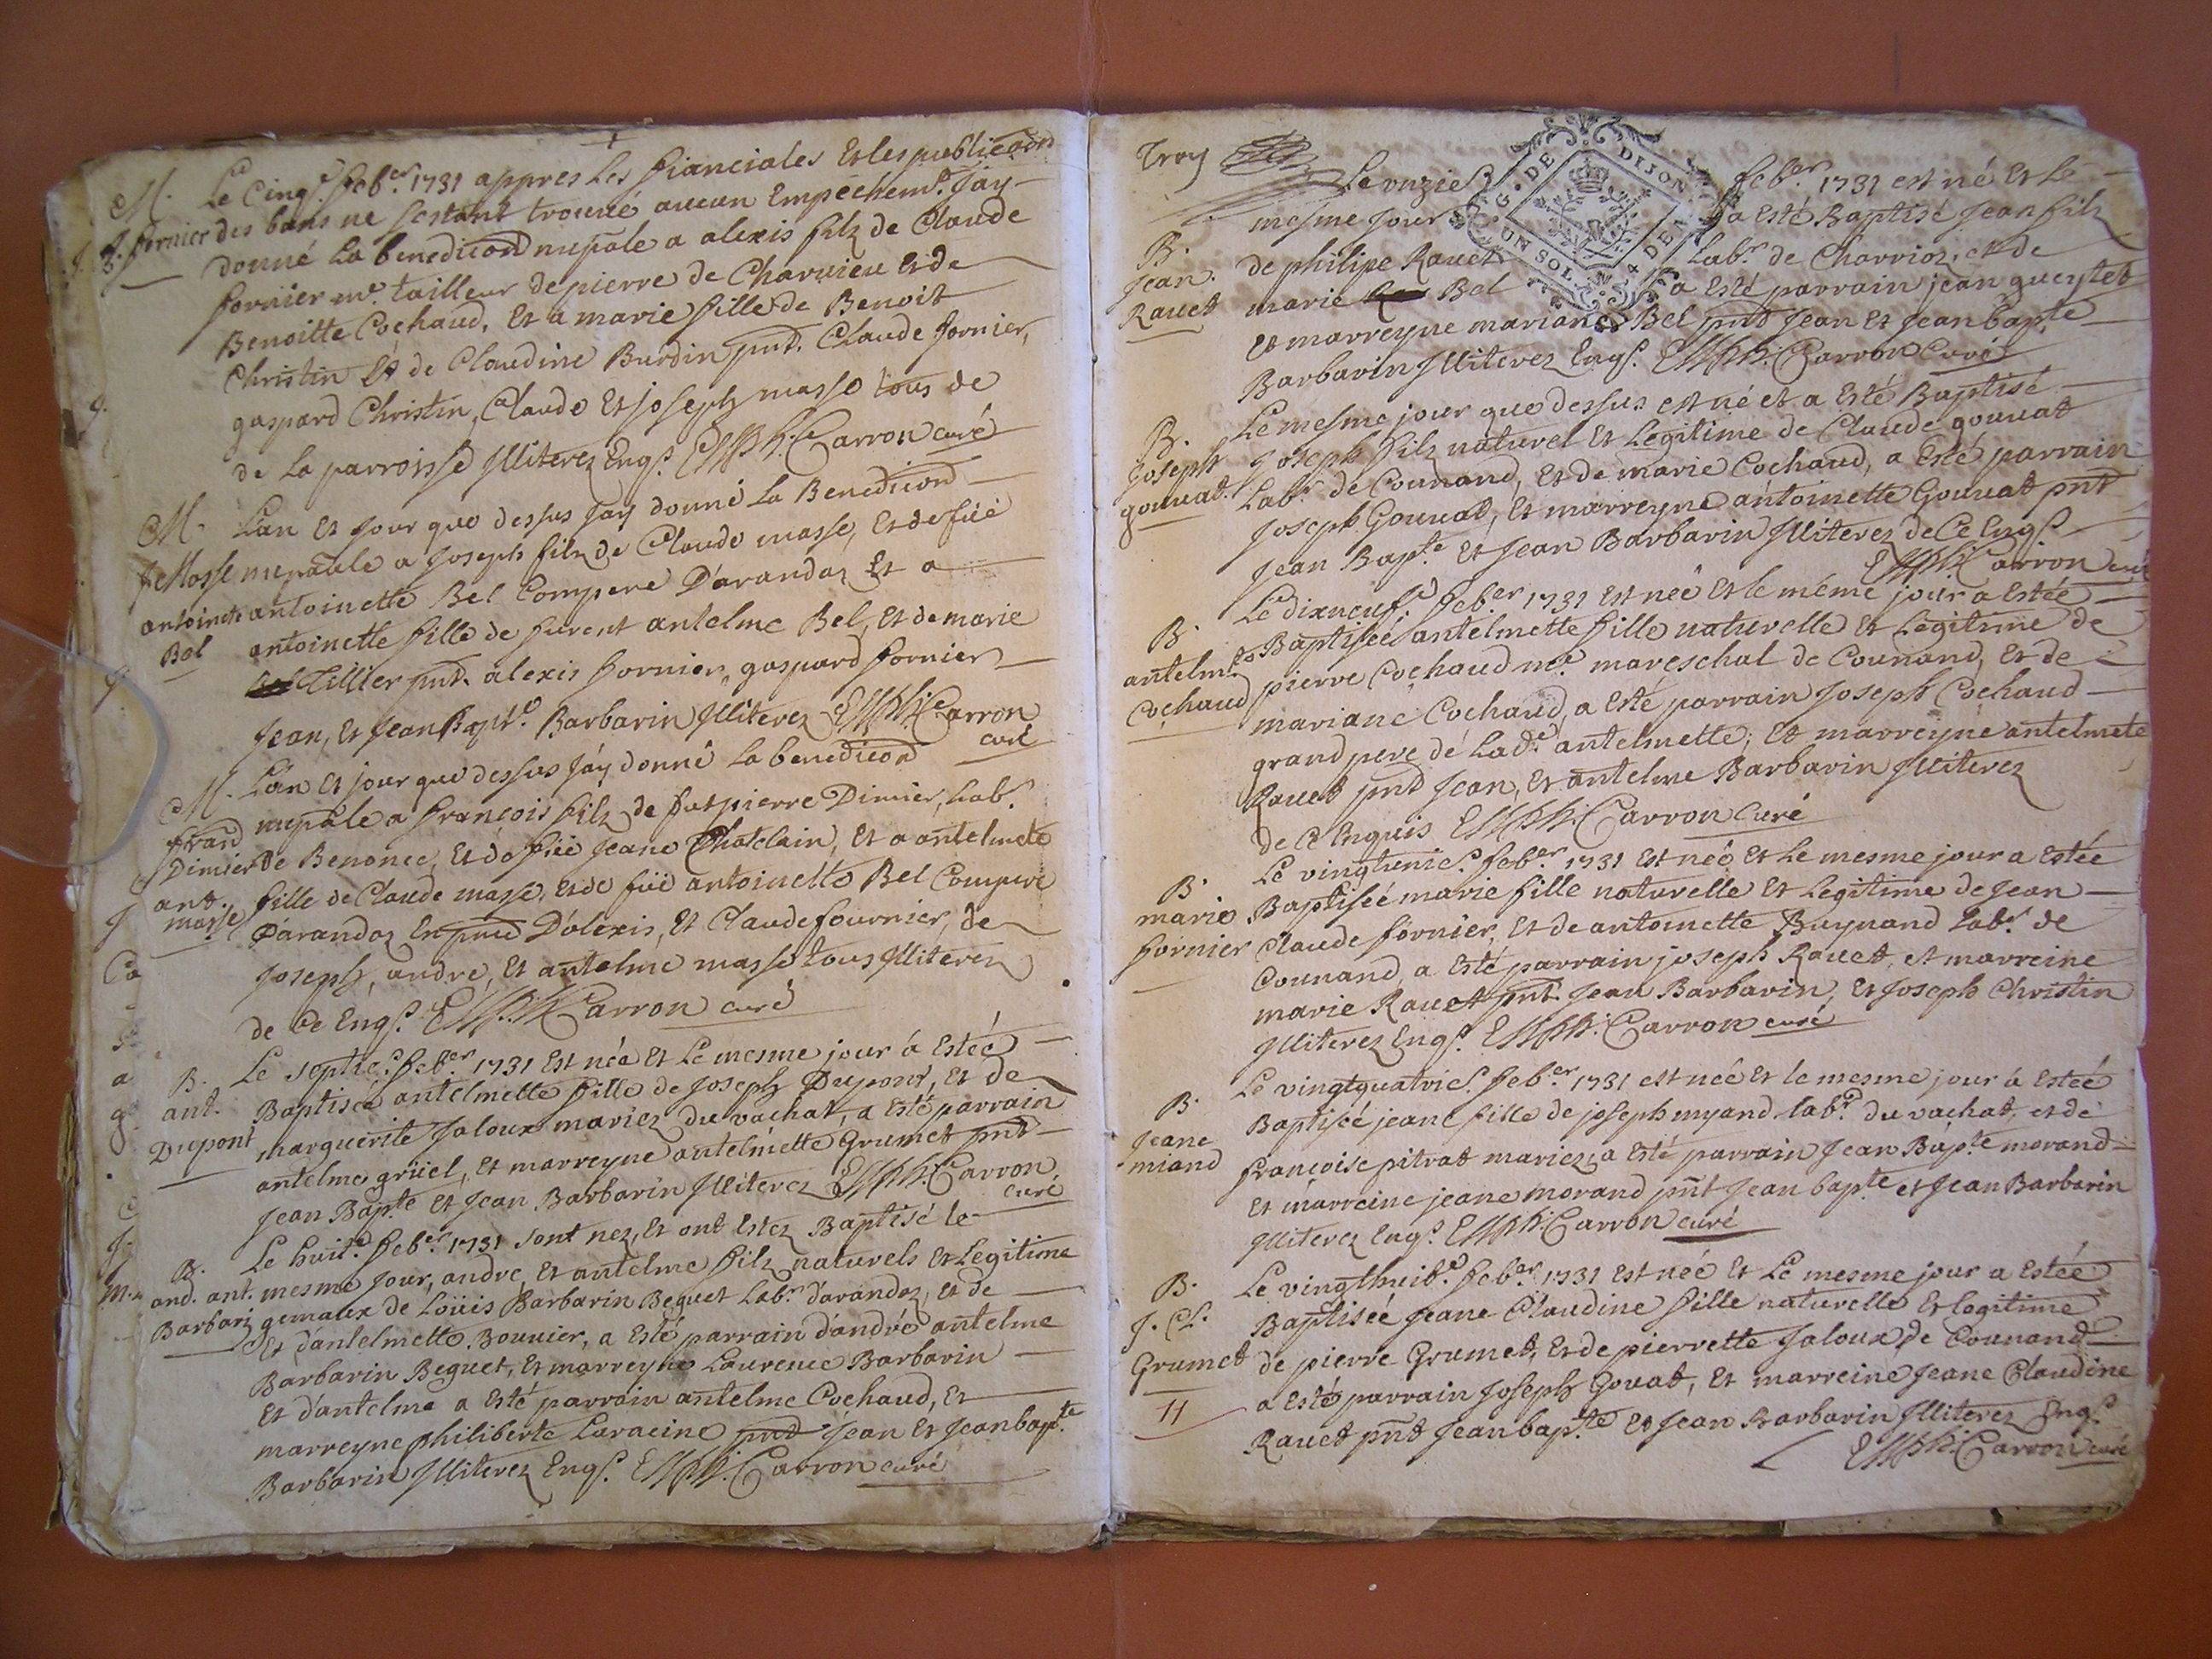 M. Le Cinq.e feb.er 1731 appres Les fianciales Et les publicaons
J. fornier des bans ne sestant trouué aucun Empechem.t Jay
donné La benedicon nupale a alexis filz de Claude
fornier m.e tailleur de pierre de Charuieu Et de
Benoitte Cochaud, Et a marie fille de Benoit
Christin Et de Claudine Burdin pnt. Claude fornier,
gaspard Christin, Claude Et joseph masse tous de
de La parroisse Illiterez Enq.s Carron curé
M. Lan Et Jour que dessus Jay donné La Benedicon
J. Masse nupaule a Joseph filz de Claude masse, Et de füe
antoinete antoinette Bel Compere D'arandaz Et a
Bel antoinette fille de furent antelme Bel, Et de marie
Tillier pnt. alexis fornier, gaspard fornier
Jean, Et Jean Bapt.e Barbarin Illiterez Carron
curé
M. Lan Et jour que dessus Jay donné La benedicon
nupale a françois filz de fut pierre Dimier, Lab.r
Dimier de Benonce, Et de füe Jeane Chatelain, Et a antelmete
ant. fille de Claude masse, Et de füe antoinette Bel Compere
masse D'arandaz En pnce D'alexis, Et Claude fournier, de
Joseph, andre, Et antelme masse tous Illiterez
de ce Enq.s Carron curé
B. Le septie.e feb.er 1731 Est née Et Le mesme jour a Estéé
ant. Baptiséé antelmette fille de Joseph Dupont, Et de
Dupont marguerite Jaloux mariez du vachat, a Esté parrain
antelme grüel, Et marreyne antelmette Grumet pnt
Jean Bap.te Et Jean Barbarin Illiterez Carron
curé
B. Le huit.e feb.er 1731 sont nez, Et ont Estez Baptisé le
and. ant. mesme Jour, andre, Et antelme filz naturels Et Legitime
Barbari gemaux de Loüis Barbarin Beguet Lab.r d'arandaz, Et de
Et d'antelmette Bouuier, a Esté parrain d'andré antelme
Barbarin Beguet, Et marreyne Laurence Barbarin
Et d'antelme a Esté parrain antelme Cochaud, Et
marreyne philiberte Laracine pnt Jean Et Jean bap.te
Barbarin Illiterez Enq.s Carron curé
Troy
Le onzie.e feb.er 1731 est né Et Le
mesme Jour a Esté Baptisé Jean filz
B. Jean Rauet de philipe Rauet Lab.r de Charrioz, et de
marie Bel a Esté parrain jean gueystet
Et marreyne mariane Bel pnt Jean Et Jean bap.te
Barbarin Illiterez Enq.s Carron Curé
G. DE DIJON UN SOL 4 DEN
B. Le mesme jour que dessus est né et a Esté Baptisé
Joseph Joseph filz naturel Et Legitime de Claude gouuat
gouuat. Lab.r de Counand, Et de marie Cochaud, a Esté parrain
Joseph Gouuat, Et marreyne antoinette Gouuat pnt
Jean Bap.te Et Jean Barbarin Illiterez de Ce Enq.s
Carron curé
Le dixneuf.e feb.er 1731 Est néé Et le méme jour a Estéé
B. Baptiséé antelmette fille naturelle Et Legitime de
antelm.te pierre Cochaud m.e mareschal de Counand, Et de
Cochaud mariane Cochaud, a Esté parrain Joseph Cochaud
grand pere de Lad.e antelmette, Et marreyne antelmete
Rauet pnt Jean, Et antelme Barbarin Illiterez
de ce Enquis Carron Curé
B. Le vingtunie.e feb.er 1731 Est néé Et Le mesme jour a Estéé
marie Baptiséé marie fille naturelle Et Legitime de Jean
fornier Claude fornier, Et de antoinette Buynand Lab.r de
Counand, a Esté parrain joseph Rauet, et marreine
marie Rauet pnt Jean Barbarin, Et Joseph Christin
Illiterez Enq.s Carron curé
B. Le vingtquatrie.e feb.er 1731 est néé Et le mesme jour a Estéé
Jeane Baptiséé jeane fille de joseph myand lab.r du vachat, et de
miand françoise pitrat mariez, a Esté parrain Jean Bap.te morand
Et marreine jeane morand pnt Jean bap.te et Jean Barbarin
Illiterez Enq.s Carron curé
B. Le vingthuit.e feb.er 1731 Est néé Et Le mesme jour a Estéé
J. Cl. Baptiséé Jeane Claudine fille naturelle Et legitime
Grumet de pierre Grumet, Et de pierrette Jaloux de Counand
11 a Esté parrain Joseph Gouat, Et marreine Jeane Claudine
Rauet pnt Jean bap.te Et Jean Barbarin Illiterez Enq.s
Carron curé